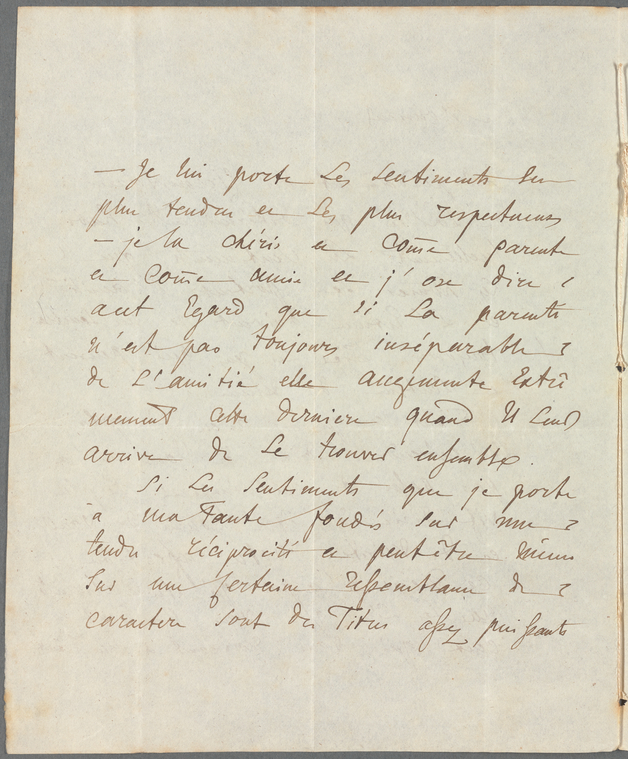 — Je lui porte Les sentiments Les
plus tendres et Les plus respectueux
— je la chéris et come parente
et come amie et j'ose dire
a cet Egard que si La parenté
n'est pas toujours inséparable
de L'amitié elle augmente Extrê
mement cette derniere quand Il Leur
arrive de Se trouver ensemble.
Si Les Sentiments que je porte
à ma Tante fondés Sur une
tendre réciprocité et peutêtre même
Sur une Certaine ressemblance de
caractere sont des Titres assez puissants